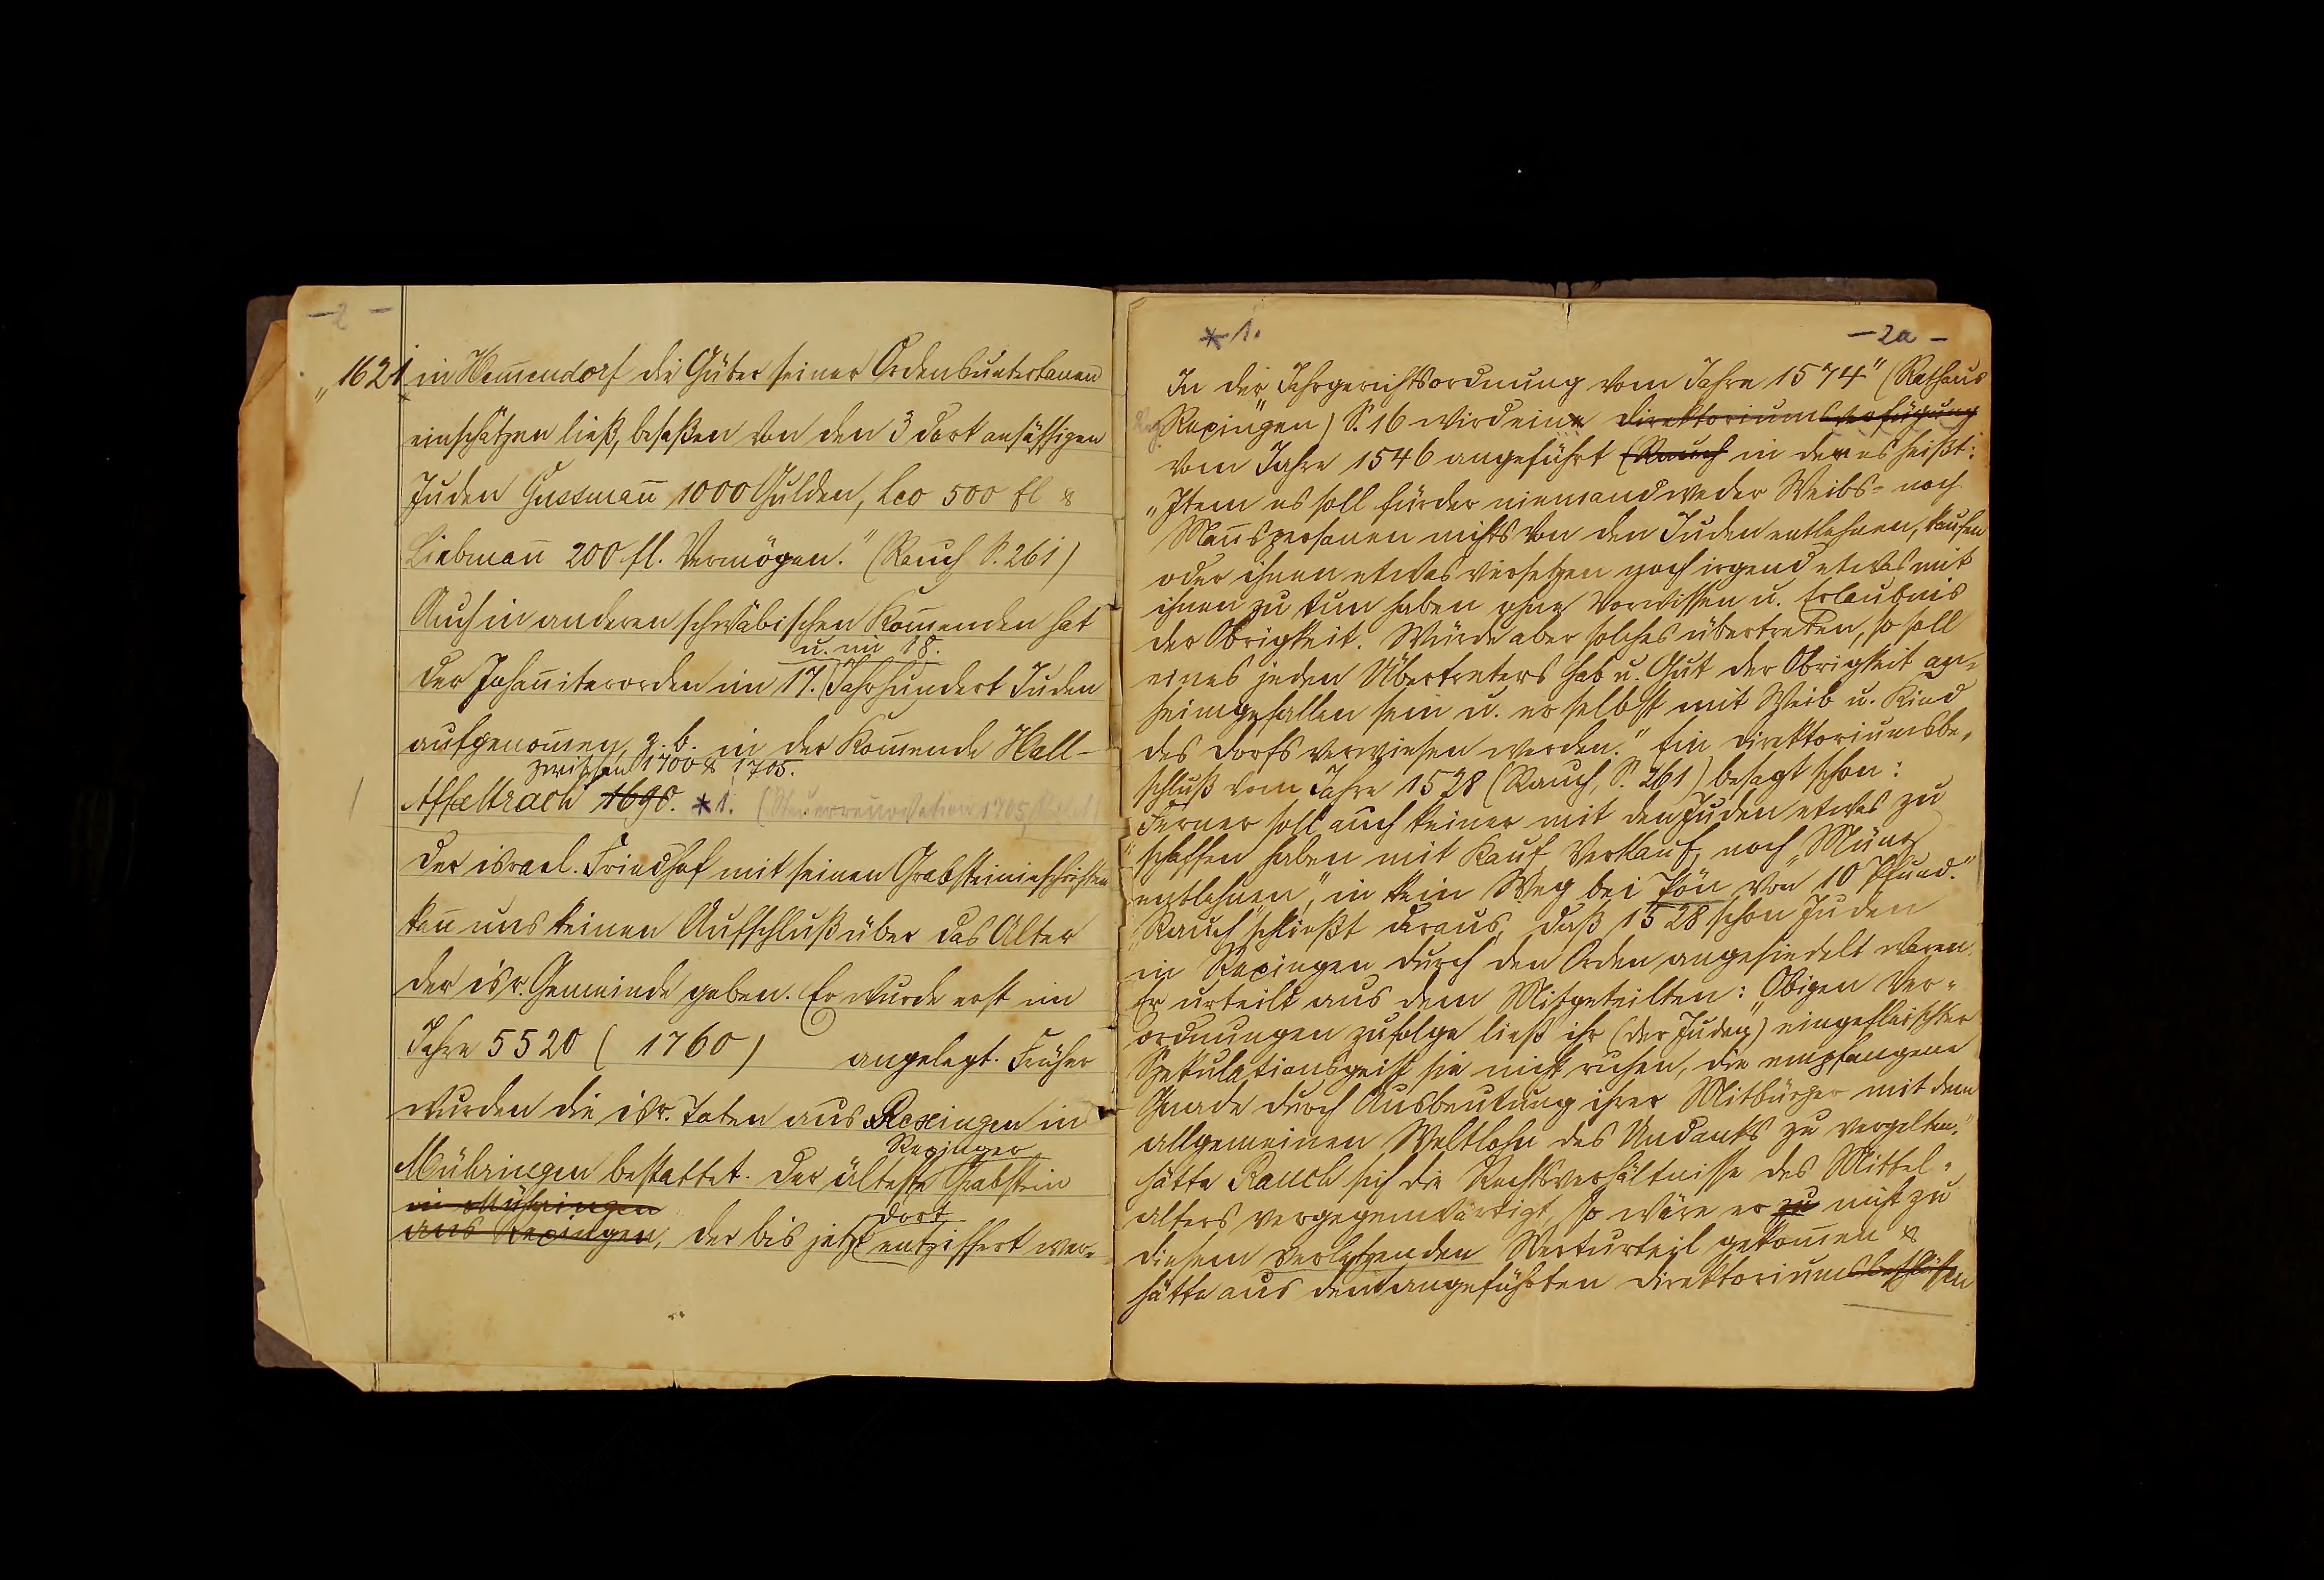 - 2 -
„1621 in Hem̄endorf die Güter seiner Ordensuntertanen
einschätzen ließ, besaßen von den 3 dort ansässigen
Juden Gussman̄ 1000 Gulden, Leo 500 fl &
Liebman̄ 200 fl. Vermögen." (Rauch S. 261)
Auch in anderen schwäbischen Kom̄enden hat
u. im 18.
der Johan̄iterorden im 17. Jahrhundert Juden
aufgenom̄en, z. B. in der Kom̄ende Hall-
zwischen 1700 & 1705.
Affaltrach 1690. *1. (Steuerrenovation 1705
Der israel. Friedhof mit seinen Grabsteininschriften
kan̄ uns keinen Aufschluß über das Alter
der isr. Gemeinde geben. Er wurde erst im
Jahre 5520 ( 1760 ) angelegt. Früher
wurden die isr. Toten aus Rexingen in
Rexinger
Mühringen bestattet. Der älteste Grabstein
in Mühringen
dort
aus Rexingen, der bis jetzt entziffert wer-
*1.
- 2a -
In der „Jahrgerichtsordnung vom Jahre 1574" (Rathaus
Rexingen) S. 16 wird eine Direktoriumsverfügung
vom Jahre 1546 angeführt (Rauch in der es heißt:
„Item es soll fürder niemand weder Weibs- noch
Man̄spersonen nichts von den Juden entlehnen, kaufen
oder ihnen etwas versetzen noch irgend etwas mit
ihnen zu tun haben ohne Vorwissen u. Erlaubnis
der Obrigkeit. Würde aber solches übertreten, so soll
eines jeden Übertreters Hab u. Gut der Obrigkeit an-
heimgefallen sein u. er selbst mit Weib u. Kind
des Dorfs verwiesen werden." Ein Direktoriumsbe-
schluß vom Jahre 1528 (Rauch, S. 261) besagt schon:
Ferner soll auch keiner mit den Juden etwas zu
„schaffen haben mit Kauf, Verkauf, noch „Münz
entlehnen", in kein Weg bei Pön von 10 Pfund."
Rauch schließt daraus, daß 1528 schon Juden
in Rexingen durch den Orden angesiedelt waren.
Er urteilt aus dem Mitgeteilten: „Obigen Ver-
ordnungen zufolge ließ ihr (der Juden) eingefleischter
Spekulationsgeist sie nicht ruhen, die empfangene
Gnade durch Ausbeutung ihrer Mitbürger mit dem
allgemeinen Weltlohn des Undanks zu vergelten."
Hätte Rauch sich die Rechtsverhältnisse des Mittel-
alters vergegenwärtigt, so wäre er zu nicht zu
diesem verletzenden Werturteil gekom̄en &
hätte aus den angeführten Direktoriumsbeschlüssen